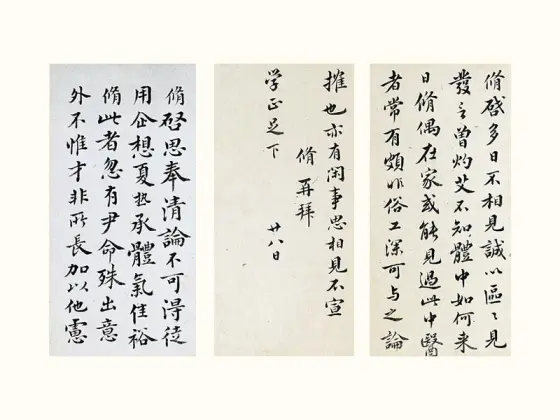 脩啓多日不相見誠以區〻見
發言曾灼艾不知體中如何来
日脩偶在家或能見過此中醫
者常有頗非俗工深可與之論
搉也亦有閑事思相見不宣
脩再拜
学正足下 廿八日
脩啓思奉清論不可得徒
用企想夏热承體氣佳裕
脩此者忽有尹命殊出意
外不惟才非所長加以他慮